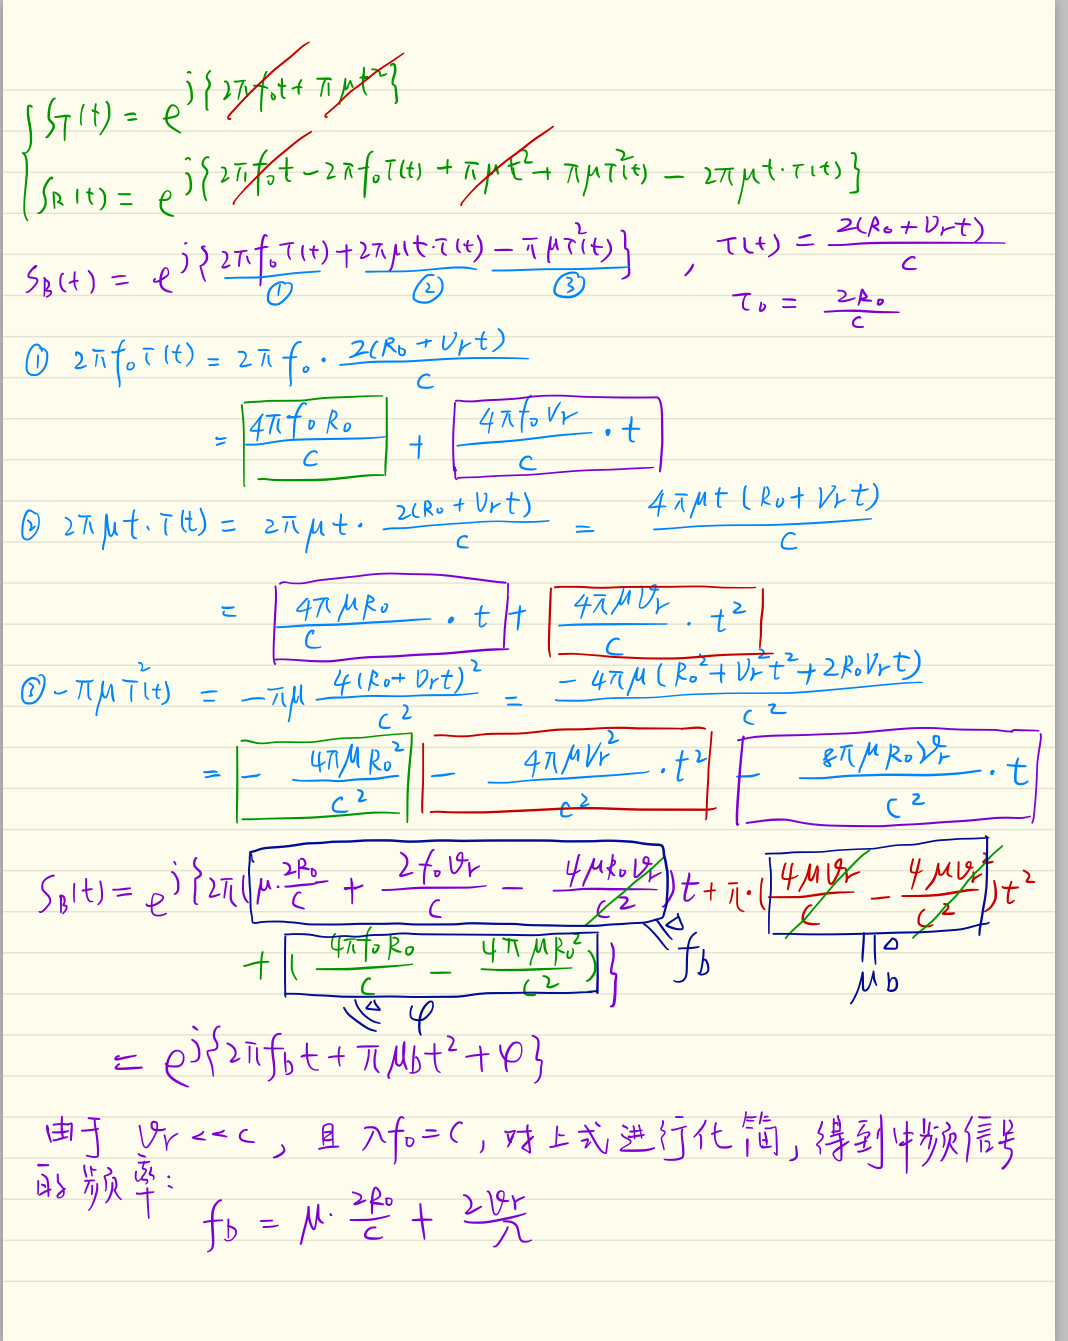 S_T(t) = e^{j{2πf₀t + πμt²}}
S_R(t) = e^{j{2πf₀t - 2πf₀τ(t) + πμt² + πμτ²(t) - 2πμt·τ(t)}}
S_B(t) = e^{j{2πf₀τ(t) + 2πμt·τ(t) - πμτ²(t)}} , τ(t) = 2(R₀+v_r t)/c
① ② ③
τ₀ = 2R₀/c
① 2πf₀τ(t) = 2πf₀ · 2(R₀+v_r t)/c
= 4πf₀R₀/c + 4πf₀v_r/c · t
② 2πμt·τ(t) = 2πμt · 2(R₀+v_r t)/c = 4πμt(R₀+v_r t)/c
= 4πμR₀/c · t + 4πμv_r/c · t²
③ -πμτ²(t) = -πμ 4(R₀+v_r t)²/c² = -4πμ(R₀²+v_r²t²+2R₀v_r t)/c²
= - 4πμR₀²/c² - 4πμv_r²/c² · t² - 8πμR₀v_r/c² · t
S_B(t) = e^{j{2π(μ·2R₀/c + 2f₀v_r/c - 4μR₀v_r/c²)t + π·(4μv_r/c - 4μv_r²/c²)t²
+ (4πf₀R₀/c - 4πμR₀²/c²)}} f_b μ_b
φ
= e^{j{2πf_b t + πμ_b t² + φ}}
由于 v_r << c , 且 λf₀=c , 对上式进行化简, 得到中频信号
的频率:
f_b = μ· 2R₀/c + 2v_r/λ